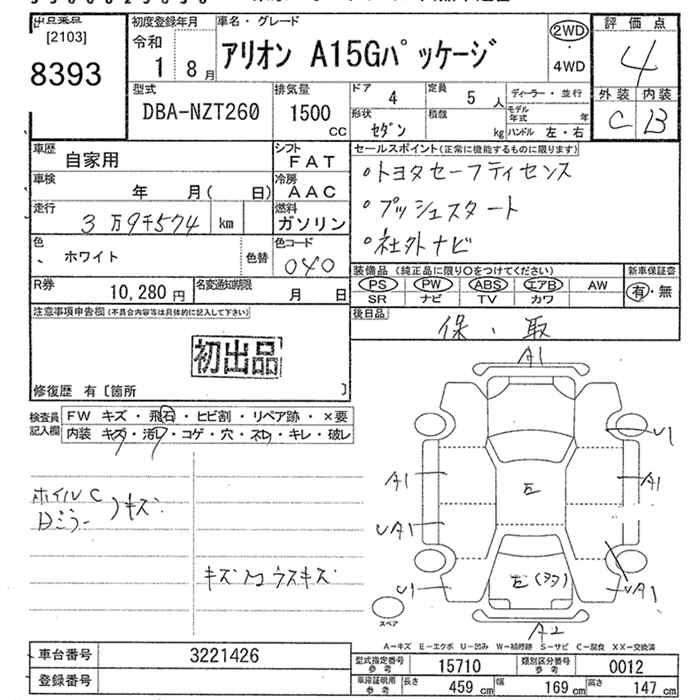 出品業者 [2103]
8393
初度登録年月
令和
1 8月
車名・グレード
アリオン A15Gパッケージ
2WD
4WD
評価点
4
外装 内装
C B
型式
DBA-NZT260
排気量
1500 CC
ドア 4
定員 5 人
ディーラー・並行
形状 セダン
積載 kg
モデル年式 年
ハンドル 左・右
車歴 自家用
シフト FAT
車検 年 月( 日)
冷房 AAC
走行 3万9千574 km
燃料 ガソリン
色 ホワイト 色替
色コード 040
R券 10,280 円
名変通知期限 月 日
セールスポイント(正常に機能するものに限ります)
・トヨタセーフティセンス
・プッシュスタート
・社外ナビ
装備品 (純正品に限り○をつけてください)
PS PW ABS エアB AW
SR ナビ TV カワ
新車保証書
有・無
後日品
保・取
注意事項申告欄(不具合内容等は具体的に記入して下さい)
初出品
修復歴 有〔箇所 〕
検査員記入欄
FW キズ・飛石・ヒビ割・リペア跡・×要
内装 キズ・汚レ・コゲ・穴・ネロ・キレ・破レ
ホイルC
Dミラー
キズ
キズ ウスキズ
A1
U1
A1
A1
UA1
U1
UA1
A2
スペア
A-キズ E-エクボ U-凹み W-補修跡 S-サビ C-腐食 XX-交換済
車台番号 3221426
登録番号
型式指定番号 参考 15710
類別区分番号 参考 0012
車庫証明用 参考 長さ 459 cm 幅 169 cm 高さ 147 cm